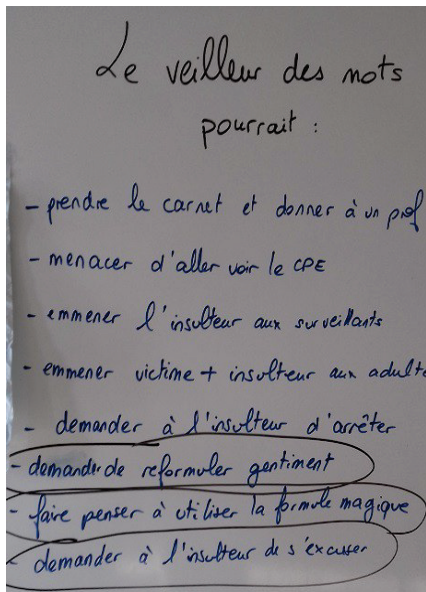 Le veilleur des mots
pourrait :
- prendre le carnet et donner à un prof
- menacer d'aller voir le CPE
- emmener l'insulteur aux surveillants
- emmener victime + insulteur aux adulte
- demander à l'insulteur d'arrêter
- demander de reformuler gentiment
- faire penser à utiliser la formule magique
- demander à l'insulteur de s'excuser